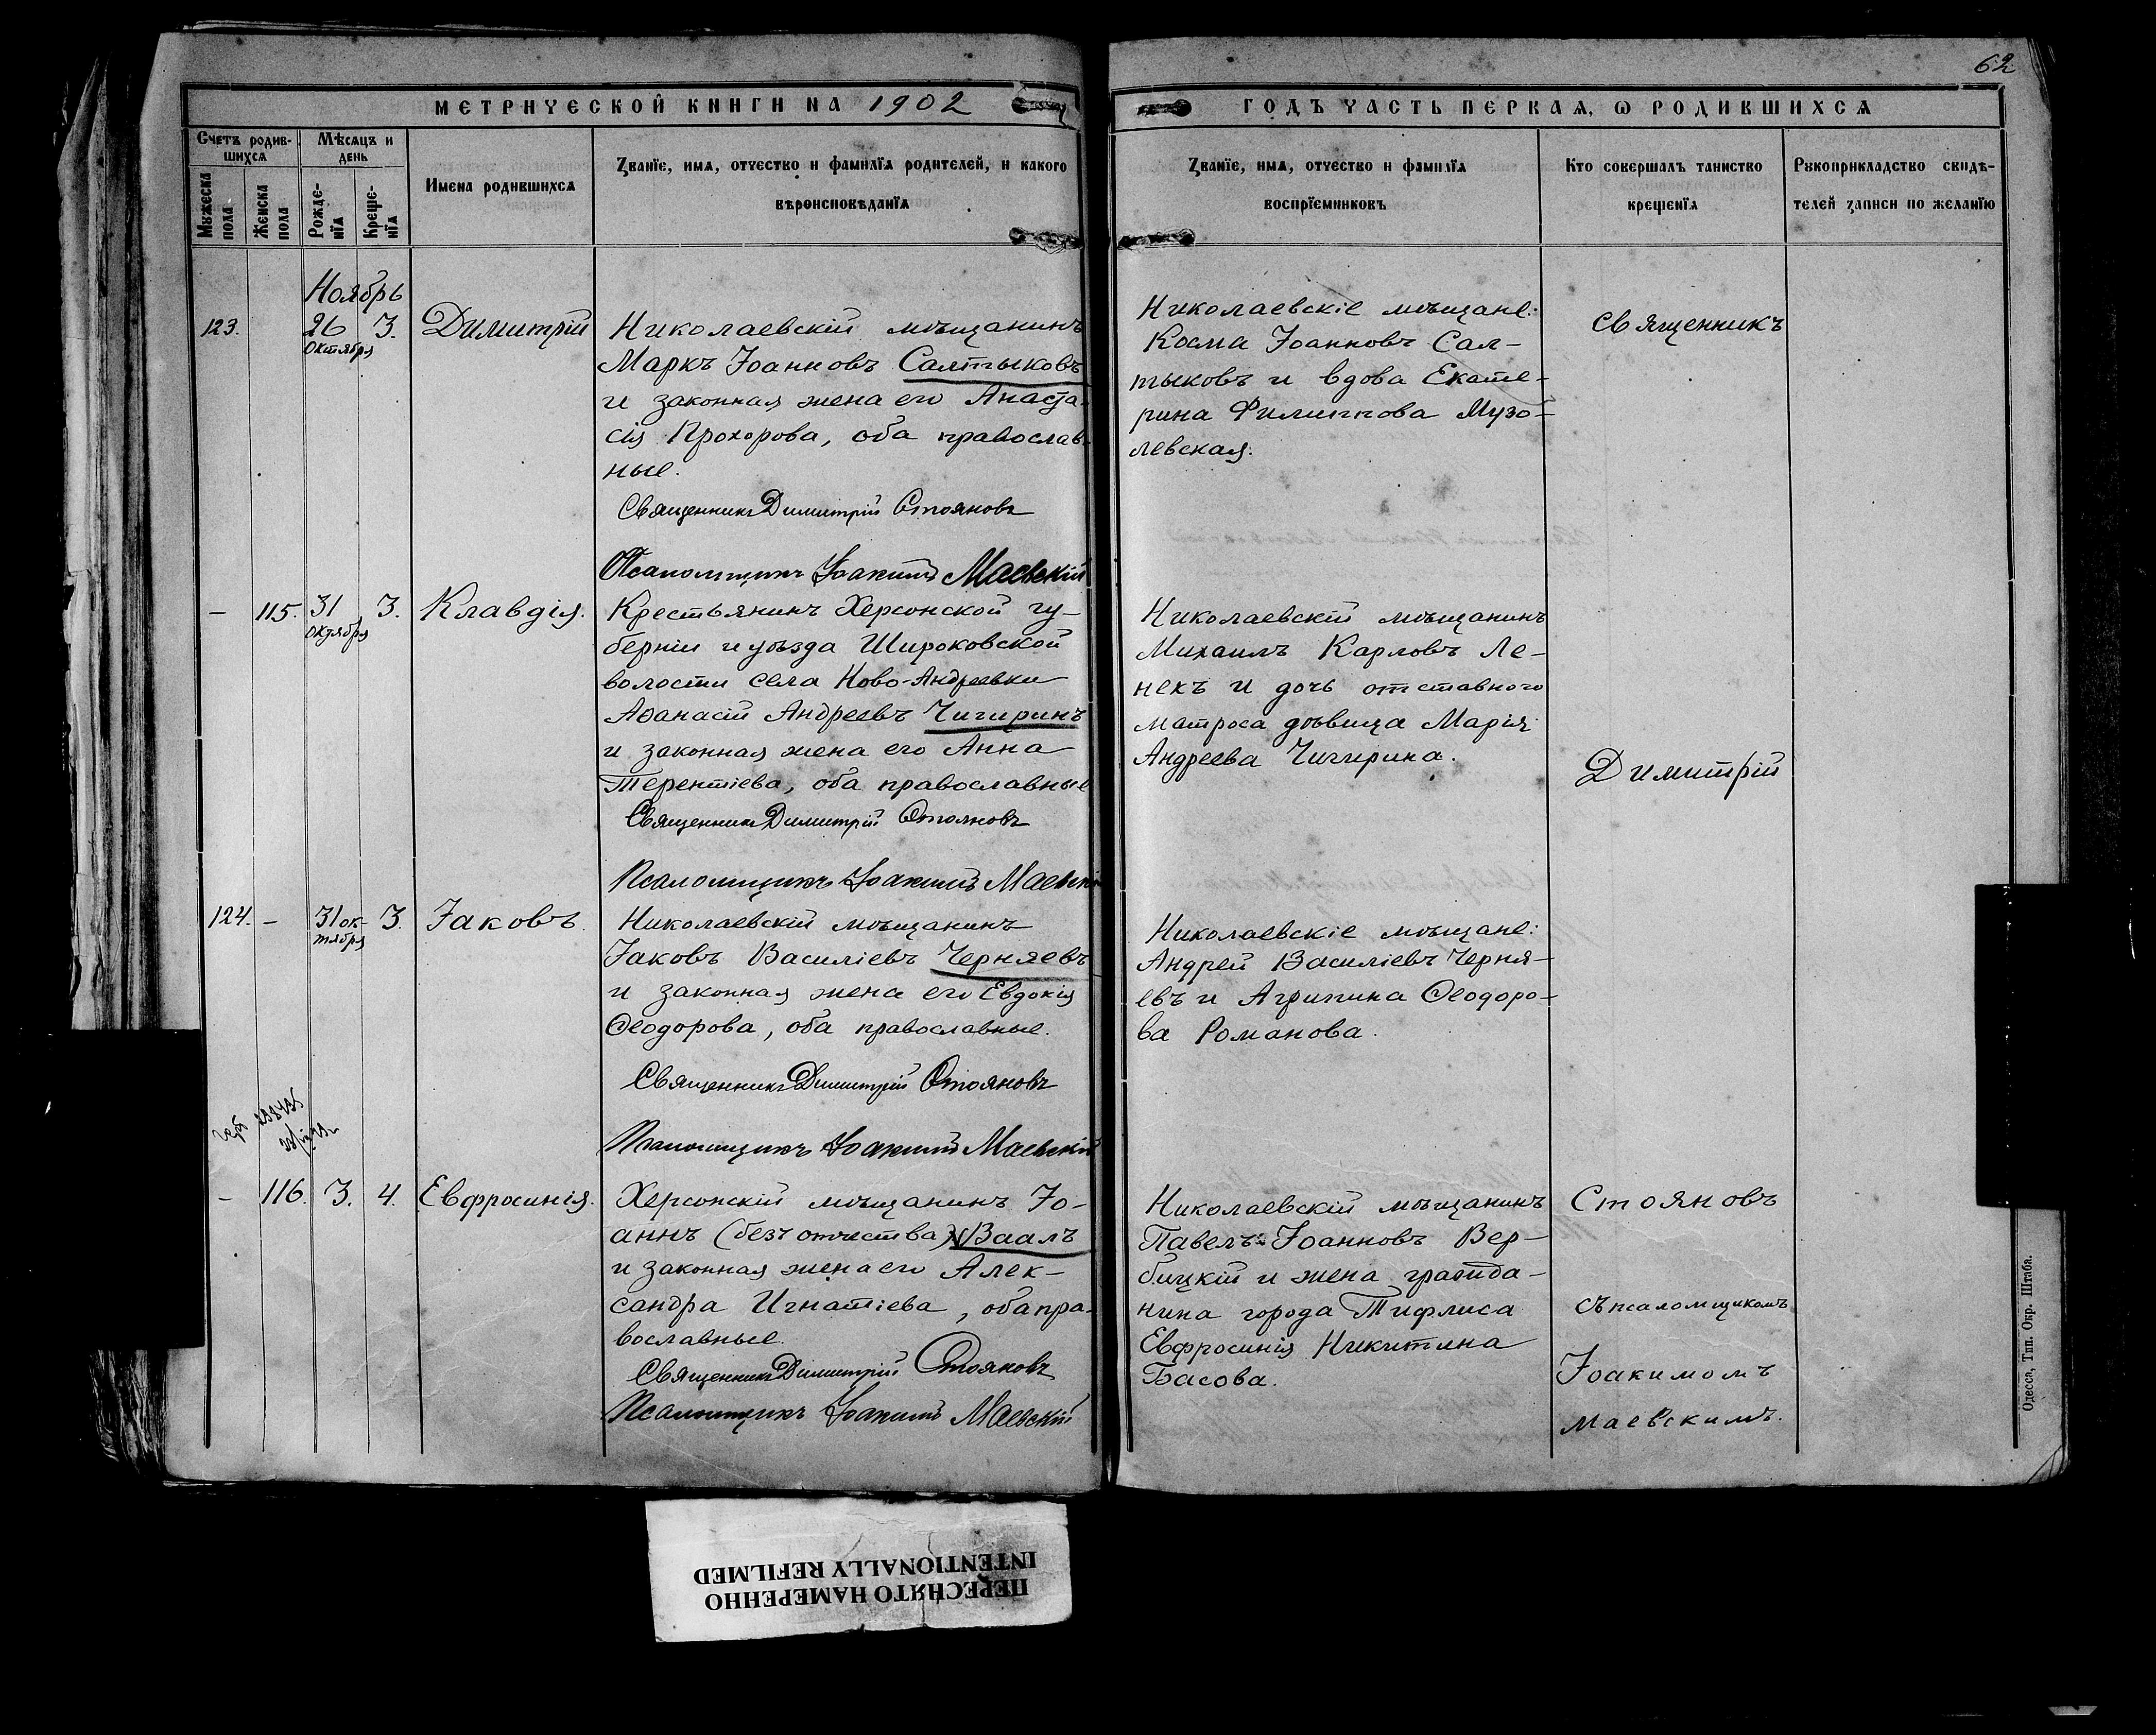 62
МЕТРИЧЕСКОЙ КНИГИ НА 1902
ГОДЪ ЧАСТЬ ПЕРВАЯ, Ѡ РОДИВШИХСЯ
Счетъ родив-
шихся
Мужеска
пола
Женска
пола
Мѣсяцъ и
день
Рожде-
нія
Креще-
нія
Имена родившихся
Званіе, имя, отчество и фамилія родителей, и какого
вѣроисповѣданія
Званіе, имя, отчество и фамилія
воспріемниковъ
Кто совершалъ таинство
крещенія
Рукоприкладство свидѣ-
телей записи по желанію
Ноябрь
123.
26
Октября
3.
Димитрій
Николаевскій мѣщанинъ
Маркъ Іоанновъ Салтыковъ
и законная жена его Анаста-
сія Прохорова, оба православ-
ные.
Священникъ Димитрій Стояновъ
Псаломщикъ Іоакимъ Маевскій
Николаевскіе мѣщане:
Косма Іоанновъ Сал-
тыковъ и вдова Екате-
рина Филиппова Музо-
левская.
Священникъ
–
115.
31
октября
3.
Клавдія.
Крестьянинъ Херсонской гу-
берніи и уѣзда Широковской
волости села Ново-Андреевки
Аѳанасій Андреевъ Чигиринъ
и законная жена его Анна
Терентіева, оба православные
Священникъ Димитрій Стояновъ
Псаломщикъ Іоакимъ Маевскій
Николаевскій мѣщанинъ
Михаилъ Карловъ Ле-
некъ и дочь отставного
матроса дѣвица Марія
Андреева Чигирина.
Димитрій
124.
–
31 ок-
тября
3.
Іаковъ.
Николаевскій мѣщанинъ
Іаковъ Василіевъ Черняевъ
и законная жена его Евдокія
Ѳеодорова, оба православные.
Священникъ Димитрій Стояновъ
Псаломщикъ Іоакимъ Маевскій
Николаевскіе мѣщане:
Андрей Василіевъ Черня-
евъ и Агрипина Ѳеодоро-
ва Романова.
–
116.
3.
4.
Евфросинія.
Херсонскій мѣщанинъ Іо-
аннъ (безъ отчества) Ваалъ
и законная жена его Алек-
сандра Игнатіева, оба пра-
вославные.
Священникъ Димитрій Стояновъ
Псаломщикъ Іоакимъ Маевскій
Николаевскій мѣщанинъ
Павелъ Іоанновъ Вер-
бицкій и жена гражда-
нина города Тифлиса
Евфросинія Никитина
Басова.
Стояновъ
съ псаломщикомъ
Іоакимомъ
Маевскимъ.
Одесса, Тип. Окр. Штаба.
ПЕРЕСНЯТО НАМЕРЕННО
INTENTIONALLY REFILMED